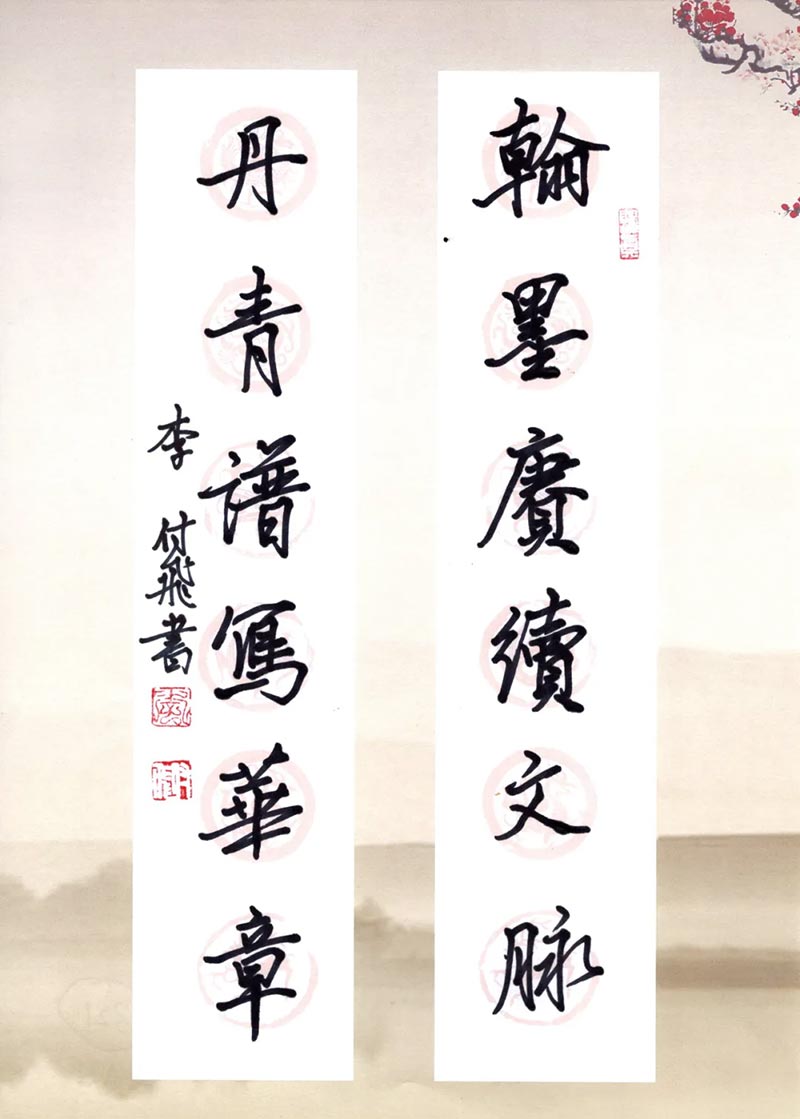 翰墨賡續文脉
丹青譜寫華章
李付飛書